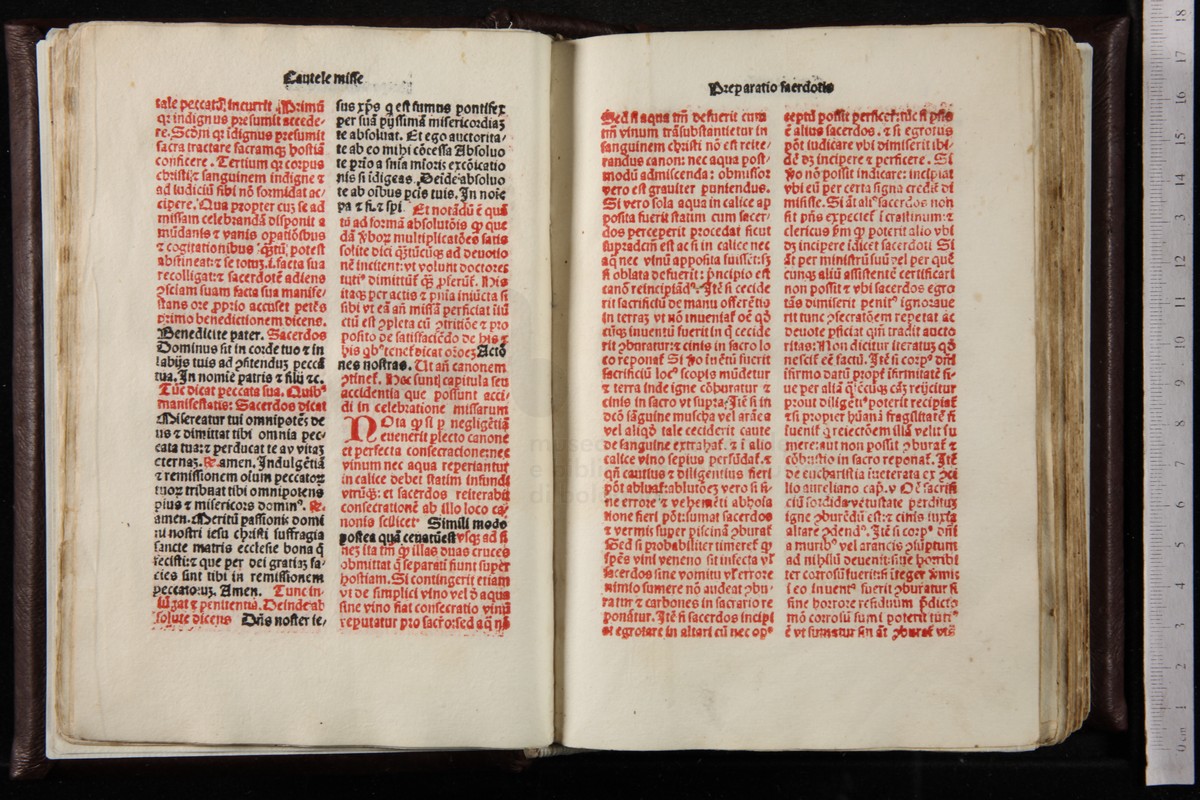 Cautele misse
tale peccatū incurrit. Primū
qꝛ indignus presumit accede-
re. Scđm qꝛ īdignus presumit
sacra tractare sacramqꝫ hostiā
conficere. Tertium qꝛ corpus
christi ⁊ sanguinem indigne ⁊
ad iudiciū sibi nō formidat ac-
cipere. Qua propter cuꝫ se ad
missam celebrandā disponit a
mūdanis ⁊ vanis oꝑatiōibus
⁊ cogitationibus q̄ꝫtū potest
abstineat: ⁊ se totuꝫ .i. facta sua
recolligat: ⁊ sacerdotē adiens
ꝯselam suam facta sua manife-
stans ore proprio accuset petēs
primo benedictionem dicens.
Benedicite pater. Sacerdos
Dominus sit in corde tuo ⁊ in
labijs tuis ad ꝯfitenduꝫ peccā
tua. In nomīe patris ⁊ filij ⁊c.
Tūc dicat peccata sua. Quibꝰ
manifestatis: Sacerdos dicat
Misereatur tui omnipotēs de
us ⁊ dimittat tibi omnia pec-
cata tua: ⁊ perducat te av vitaꝫ
eternaꝫ. ℟. amen. Indulgētiā
⁊ remissionem oīum peccatoꝝ
tuoꝝ tribuat tibi omnipotens
pius ⁊ misericors dominꝰ. ℟.
amen. Meritū passionis domi
ni nostri iesu christi suffragia
sancte matris ecclesie bona q̄
fecisti: ⁊ que per dei gratiaꝫ fa-
cies sint tibi in remissionem
peccatoꝝ. Amen. Tunc in-
iūgat ⁊ penitentiā. Deinde ab
solute dicens Dn̄s noster ie-
sus xp̄s q̇ est sūmus pontifex
per suā pijssimā misericordiaꝫ
te absoluat. Et ego auctorita-
te ab eo mihi cōcessa Absoluo
te prīo a snīa mīoris excōicatio
nis si īdigeas. Deīde absoluo
te ab oībus pctīs tuis. In noīe
pa ⁊ fi. ⁊ spi. Et notādū ē quā
tū ad formā absolutōis ꝙ que
dā ꝟboꝝ multiplicatōes satis
solite dici q̄ꝫtūcūqꝫ ad deuotio
nē incitent: vt volunt doctores
tutiꝰ dimittūt q̄ꝫ ꝓferūt. His
itaqꝫ per actis ⁊ pnīa iniūcta si
sibi vt eā an̄ missā perficiat iniū
ctū est ꝯpleta cū ꝯtritiōe ⁊ pro
posito de satisfaciēdo de his ⁊
his qͥbꝰ tenet̄ dicat oroēꝫ Actō
nes nostras. Ut an̄ canonem
ꝯtinet̄. Hec sunt capitula seu
accidentia que possunt acci-
di in celebratione missarum
NOta ꝙ si ꝑ negligētiā
euenerit ꝑlecto canone
et perfecta consecratione: nec
vinum nec aqua reperiantur
in calice debet statim infundi
vtrūqꝫ: et sacerdos reiterabit
consecrationē ab illo loco ca-
nonis scilicet Simili modo
postea quā cenatū est vsqꝫ ad fi
neꝫ ita tn̄ ꝙ illas duas cruces
obmittat q̄ separati fiunt super
hostiam. Si contingerit etiam
vt de simplici vino vel d̓ aqua
sine vino fiat consecratio vinū
reputatur pro sacro: sed aq̄ nō
Preparatio sacerdotis
Sed si aqua tm̄ defuerit cum
tm̄ vinum trāsubstantietur in
sanguinem christi nō est reite-
randus canon: nec aqua post-
modū admiscenda: obmissor
vero est grauiter puniendus.
Si vero sola aqua in calice ap
posita fuerit statum cum sacer-
dos perceperit procedat sicut
supradcm̄ est ac si in calice nec
aq̄ nec vinū apposita fuisset: sꝫ
si oblata defuerit: ṗncipio est
canō reincipiēdꝰ. Itē si cecide
rit sacrificiū de manu offerētis
in terraꝫ vt nō inueniat̄ oē qđ
cūqꝫ inuentū fuerit in q̊ cecide
rit ꝯburatur: ⁊ cinis in sacro lo
co reponat̄ Si ꝟo īnētū fuerit
sacrificiū locꝰ scopis mūdetur
⁊ terra inde igne cōburatur ⁊
cinis in sacro vt supra. Itē si in
dcō sāguine musca vel arāea
vel aliqđ tale ceciderit caute
de sanguine extrahat̄. ⁊ ī alio
calice vino sepius perfūdat̄. ⁊
q̄ꝫ cautius ⁊ diligentius fieri
pōt abluat̄: ablutōeꝫ vero si fi-
ne errore ⁊ vehemēti abhoīa
tione fieri pōt: sumat sacerdos
⁊ vermis super piscinā ꝯburat̄
Sed si probabiliter timeret̄ ꝙ
spēs vini veneno sit infecta vl̓
sacerdos sine vomitu vl̓ errore
nimio sumere nō audeat ꝯbu-
ratur ⁊ carbones in sacrario re
ponātur. Itē si sacerdos incipi
at egrotare in altari cū nec opꝰ
ceptū possit perficere: nīc si p̄ns
ē alius sacerdos. ⁊ si egrotus
pōt iudicare vbi dimiserit ibi-
dē dꝫ incipere ⁊ perficere. Si
ꝟo nō possit indicare: incipiat
vbi eū per certa signa credit̄ di
misisse. Si āt aliꝰ sacerdos non
sit p̄ns expectet̄ ī crastinum: ⁊
clericus pm̄ ꝙ poterit alio vbi
dꝫ incipere īdicet sacerdoti Si
āt per ministrū suū vel per quē
cunqꝫ aliū assistentē certificari
non possit ⁊ vbi sacerdos egro
tās dimiserit penitꝰ ignoraue
rit tunc ꝯsecratōem repetat ac
deuote ꝑficiat q̄m tradit aucto
ritas: Non dicitur iteratū qđ
nescit̄ eē factū. Itē si corpꝰ dn̄i
īfirmo datū propt̄ īfirmitatē fi-
ue per aliā q̄cūqꝫ cāꝫ reijcitur
prout diligētiꝰ poterit recipiat̄
⁊ si propter hūanā fragilitatē fi
fuerit q̇ reiectōem illā velit su
mere: aut non possit ꝯburat̄ ⁊
cōbustio in sacro reponat̄. Itē
de eucharistia īueterata ex ꝯci
lio aureliano cap. v Oē sacrifi
ciū sordida vetustate perditum
igne ꝯburēdū est: ⁊ cinis iuxta
altare ꝯdendꝰ. Itē si corpꝰ dn̄i
a muribꝰ vel araneis ꝯsūptum
ad nihilū deuenit: siue horribi
ter corrosū fuerit: si īteger ꝟmis
ī eo inuentꝰ fuerit ꝯburatur si
sine horrore residuum p̄dicto
mō corrosū sumi poterit tutiꝰ
ē vt sumatur sin āt ꝯburat̄ vts̄